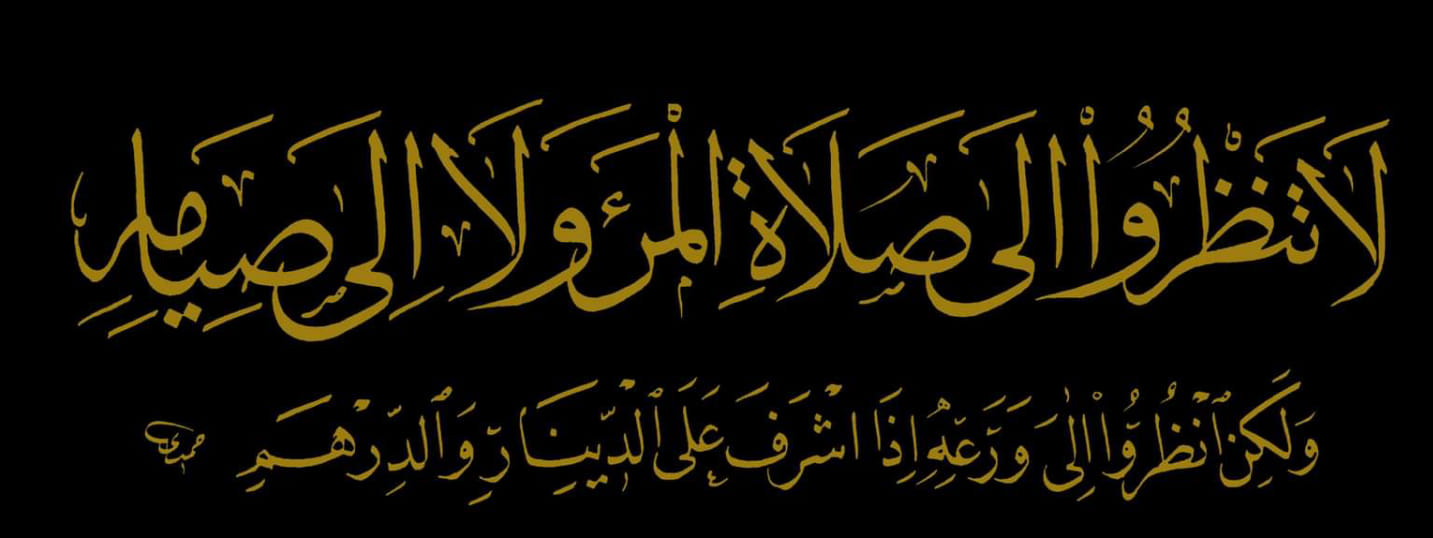 لَا تَنْظُرُوا إِلَى صَلَاةِ الْمَرْءِ وَلَا إِلَى صِيَامِهِ
وَلَكِنْ انْظُرُوا إِلَى وَرَعِهِ إِذَا اشْرَفَ عَلَى الدِّينَارِ وَالدِّرْهَمِ